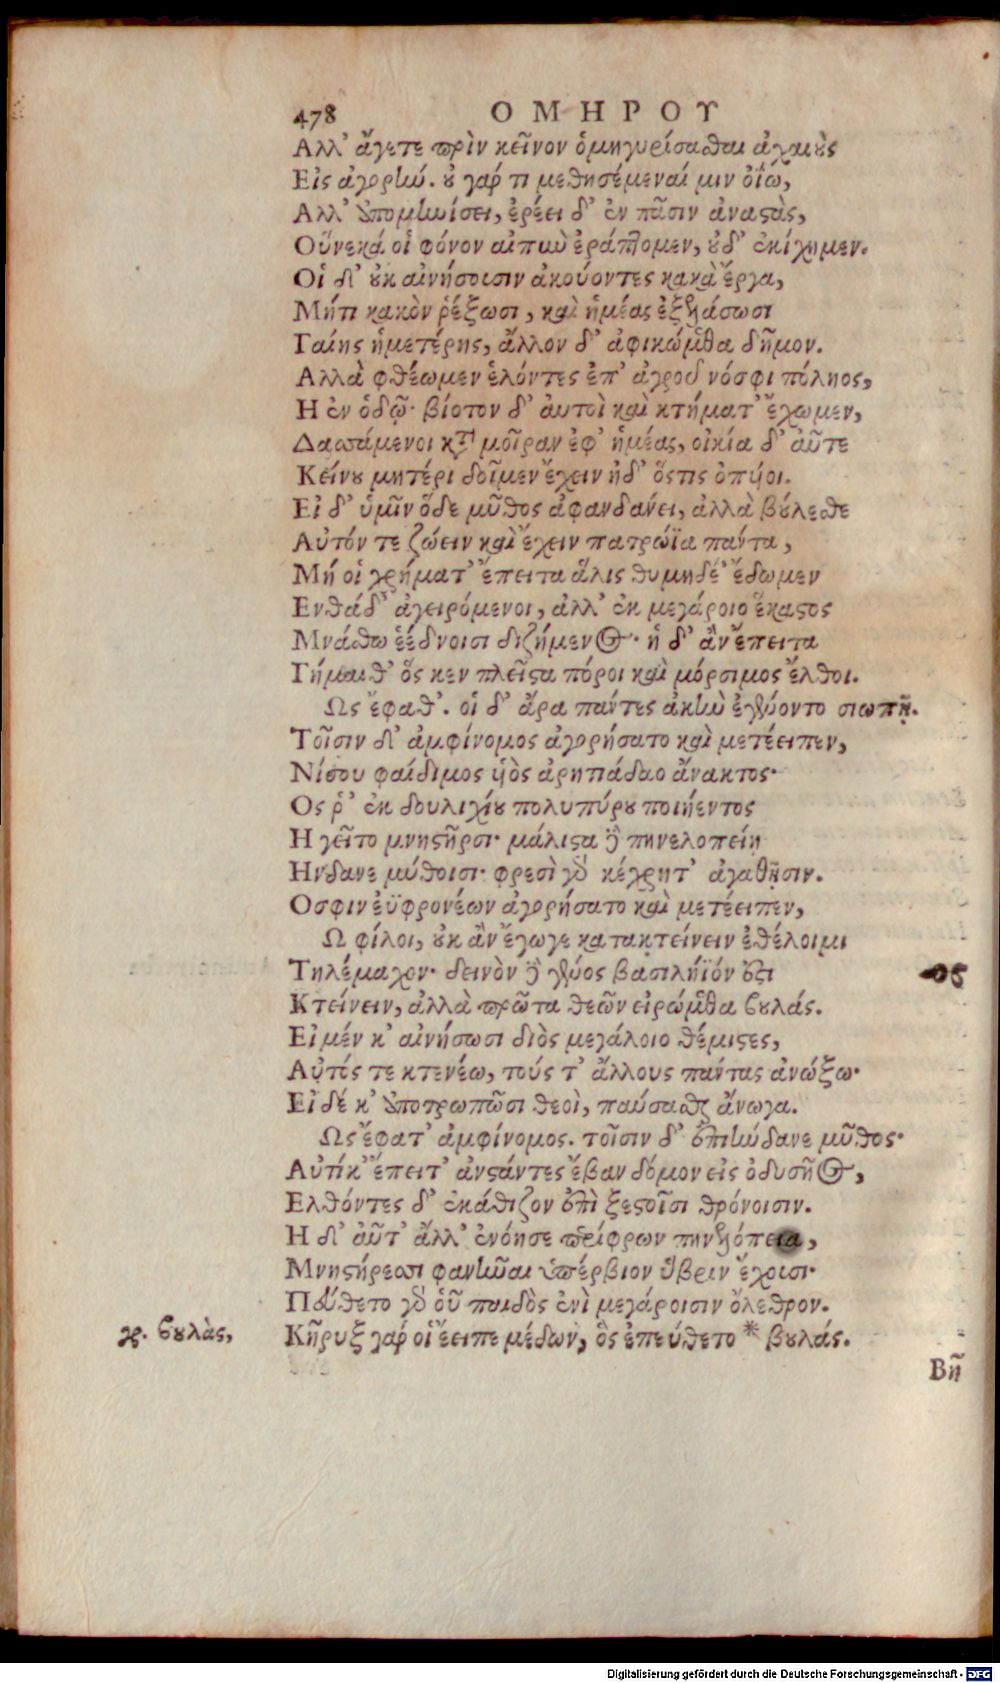 478 ΟΜΗΡΟΥ
Αλλ' ἄγετε πρὶν κεῖνον ὁμηγυρίσασθαι ἀχαιοὺς
Εἰς ἀγορήν. οὐ γάρ τι μεθησέμεναί μιν ὀΐω,
Αλλ' ἀπομηνίσει, ἐρέει δ' ἐν πᾶσιν ἀναστὰς,
Οὕνεκά οἱ φόνον αἰπὺν ἐράπτομεν, οὐδ' ἐκίχημεν.
Οἱ δ' οὐκ αἰνήσουσιν ἀκούοντες κακὰ ἔργα,
Μήτι κακὸν ῥέξωσι, καὶ ἡμέας ἐξελάσωσι
Γαίης ἡμετέρης, ἄλλον δ' ἀφικώμεθα δῆμον.
Αλλὰ φθέωμεν ἑλόντες ἐπ' ἀγροῦ νόσφι πόληος,
Η ἐν ὁδῷ· βίοτον δ' ἀυτοὶ καὶ κτήματ' ἔχωμεν,
Δασσάμενοι κατὰ μοῖραν ἐφ' ἡμέας, οἰκία δ' αὖτε
Κείνου μητέρι δοῖμεν ἔχειν ἠδ' ὅστις ὀπύοι.
Εἰ δ' ὑμῖν ὅδε μῦθος ἀφανδάνει, ἀλλὰ βούλεσθε
Αὐτόν τε ζώειν καὶ ἔχειν πατρώϊα πάντα,
Μή οἱ χρήματ' ἔπειτα ἅλις θυμηδέ' ἔδωμεν
Ενθάδ' ἀγειρόμενοι, ἀλλ' ἐκ μεγάροιο ἕκαστος
Μνάσθω ἐέδνοισι διζήμενος· ἡ δ' ἂν ἔπειτα
Γήμαιθ' ὅς κεν πλεῖστα πόροι καὶ μόρσιμος ἔλθοι.
Ως ἔφαθ'. οἱ δ' ἄρα πάντες ἀκὴν ἐγένοντο σιωπῇ.
Τοῖσιν δ' ἀμφίνομος ἀγορήσατο καὶ μετέειπεν,
Νίσου φαίδιμος υἱὸς ἀρητιάδαο ἄνακτος·
Ος ῥ' ἐκ δουλιχίου πολυπύρου ποιήεντος
Η γεῖτο μνηστῆρσι· μάλιστα δὲ πηνελοπείῃ
Ηνδανε μύθοισι· φρεσὶ γὰρ κέχρητ' ἀγαθῇσιν.
Οσφιν ἐϋφρονέων ἀγορήσατο καὶ μετέειπεν,
Ω φίλοι, οὐκ ἂν ἔγωγε κατακτείνειν ἐθέλοιμι
Τηλέμαχον· δεινὸν δὲ γένος βασιλήϊόν ἐστι
Κτείνειν, ἀλλὰ πρῶτα θεῶν εἰρώμεθα βουλάς.
Εἰ μέν κ' αἰνήσωσι διὸς μεγάλοιο θέμιστες,
Αὐτός τε κτενέω, τούς τ' ἄλλους πάντας ἀνώξω·
Εἰ δέ κ' ἀποτρωπῶσι θεοὶ, παύσασθαι ἄνωγα.
Ως ἔφατ' ἀμφίνομος. τοῖσιν δ' ἐπιήνδανε μῦθος·
Αὐτίκ' ἔπειτ' ἀνστάντες ἔβαν δόμον εἰς ὀδυσῆος,
Ελθόντες δ' ἐκάθιζον ἐπὶ ξεστοῖσι θρόνοισιν.
Η δ' αὖτ' ἄλλ' ἐνόησε περίφρων πηνελόπεια,
Μνηστήρεσσι φανῆναι ὑπέρβιον ὕβριν ἔχουσι·
Πεύθετο γὰρ οὗ παιδὸς ἐνὶ μεγάροισιν ὄλεθρον.
γρ. βουλὰς, Κῆρυξ γάρ οἱ ἔειπε μέδων, ὃς ἐπεύθετο * βουλάς.
Βῆ
Digitalisierung gefördert durch die Deutsche Forschungsgemeinschaft - DFG